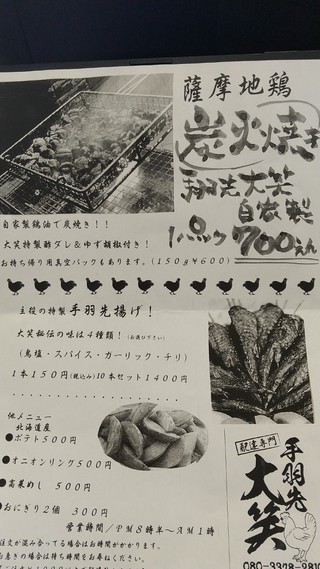 薩摩地鶏
炭火焼き
手羽先大笑
自家製
1パック700えん
自家製鶏油で炭焼き！！
大笑特製酢ダレ＆ゆず胡椒付き！
お持ち帰り用真空パックもあります。(150g¥600)
主役の特製 手羽先揚げ！
大笑秘伝の味は4種類！（お選び下さい）
(鳥塩・スパイス・ガーリック・チリ)
1本150円(税込み)10本セット1400円
他メニュー
北海道産
●ポテト500円
●オニオンリング500円
●高菜めし 500円
●おにぎり2個 300円
営業時間／PM8時半〜AM1時
注文が混み合ってる場合はお時間がかかります。
お急ぎの場合は待ち時間をお尋ねください。
配達専門
手羽先
大笑
080-3378-2810